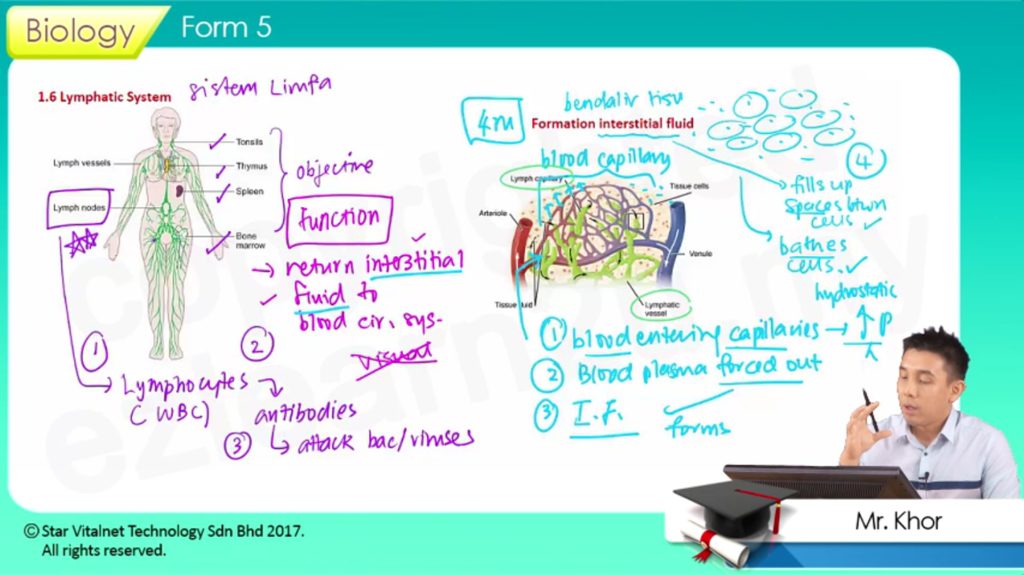 Biology
Form 5
1.6 Lymphatic System
sistem Limfa
Tonsils
Lymph vessels
Thymus
Spleen
Lymph nodes
Bone
marrow
objective
function
→ return interstitial
✓ fluid to
blood cir. sys-
visual
①
②
→ Lymphocytes
(WBC)
antibodies
③ ↳ attack bac/viruses
4m
bendalir tisu
Formation interstitial fluid
blood capillary
Lymph capillary
Tissue cells
Arteriole
Venule
Tissue fluid
Lymphatic
vessel
④
fills up
spaces btwn
cells ✓
bathes
cells. ✓
hydrostatic
① blood entering capillaries → ↑ P
② Blood plasma forced out
③ I.F. forms
Mr. Khor
© Star Vitalnet Technology Sdn Bhd 2017.
All rights reserved.